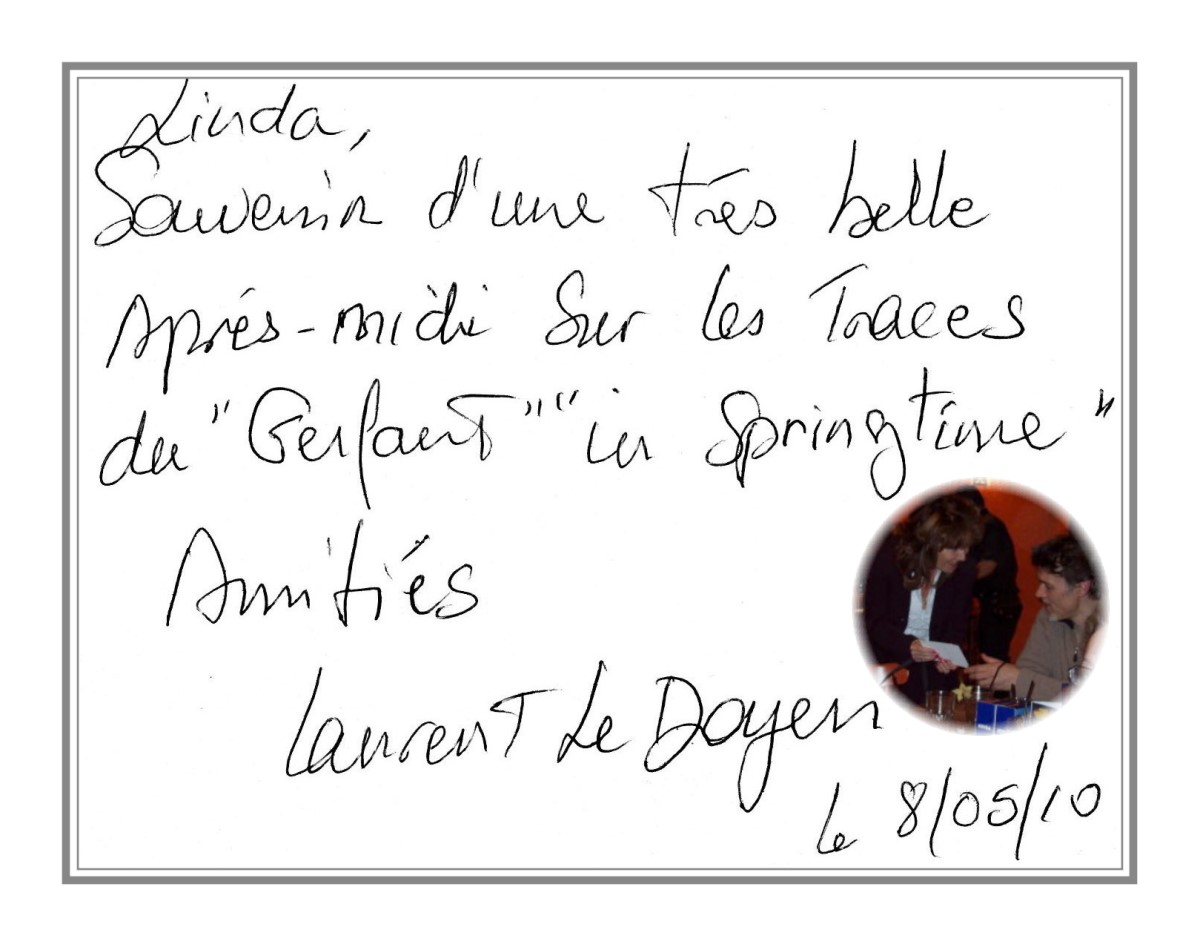 Linda,
Souvenir d'une trés belle
Après-midi Sur les Traces
du "Gerfaut" "in Springtime"
Amitiés
Laurent Le Doyen
le 8/05/10